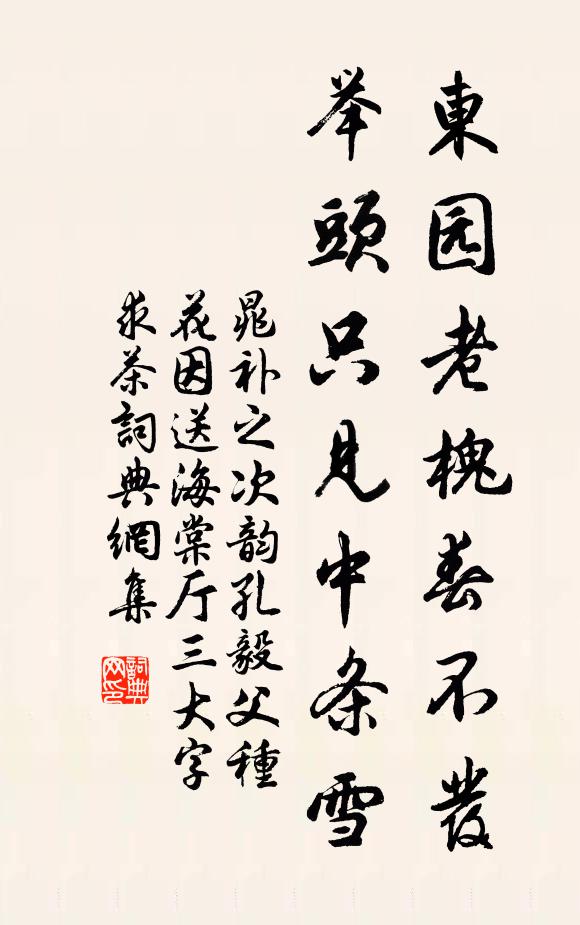 東园老槐春不發
举頭只見中条雪
晁补之次韵孔毅父種
花因送海棠厅三大字
求茶詞典網集
詞典网印